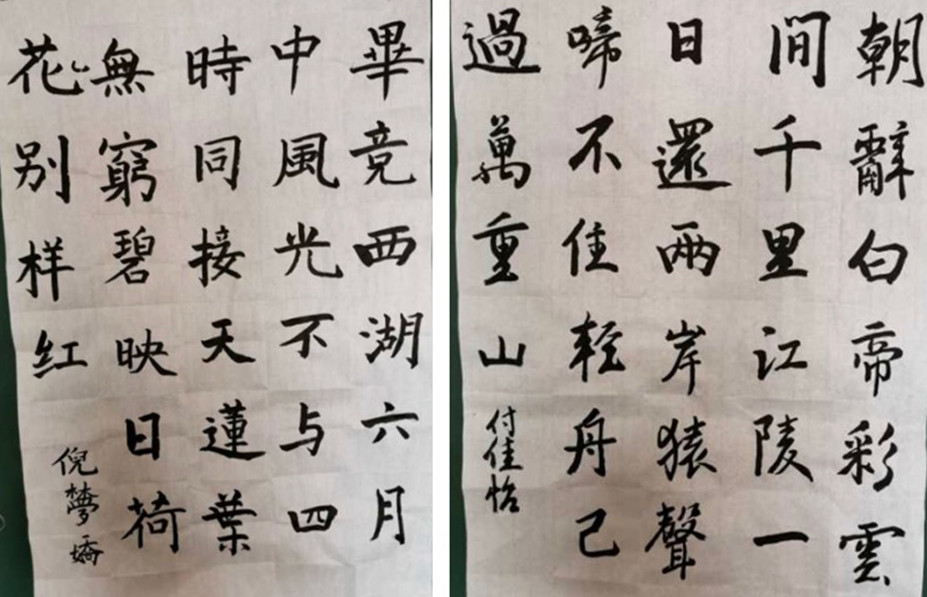 畢竟西湖六月
中風光不与四
時同接天蓮葉
無窮碧映日荷
花别样红
倪夢嬌
朝辭白帝彩雲
間千里江陵一
日還兩岸猿聲
啼不佳輕舟己
過萬重山
付佳怡